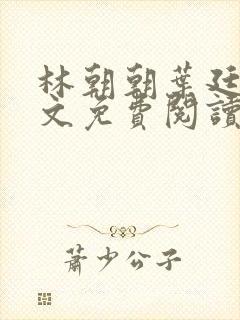 林朝朝葉廷
文免費閱讀
蕭少公子